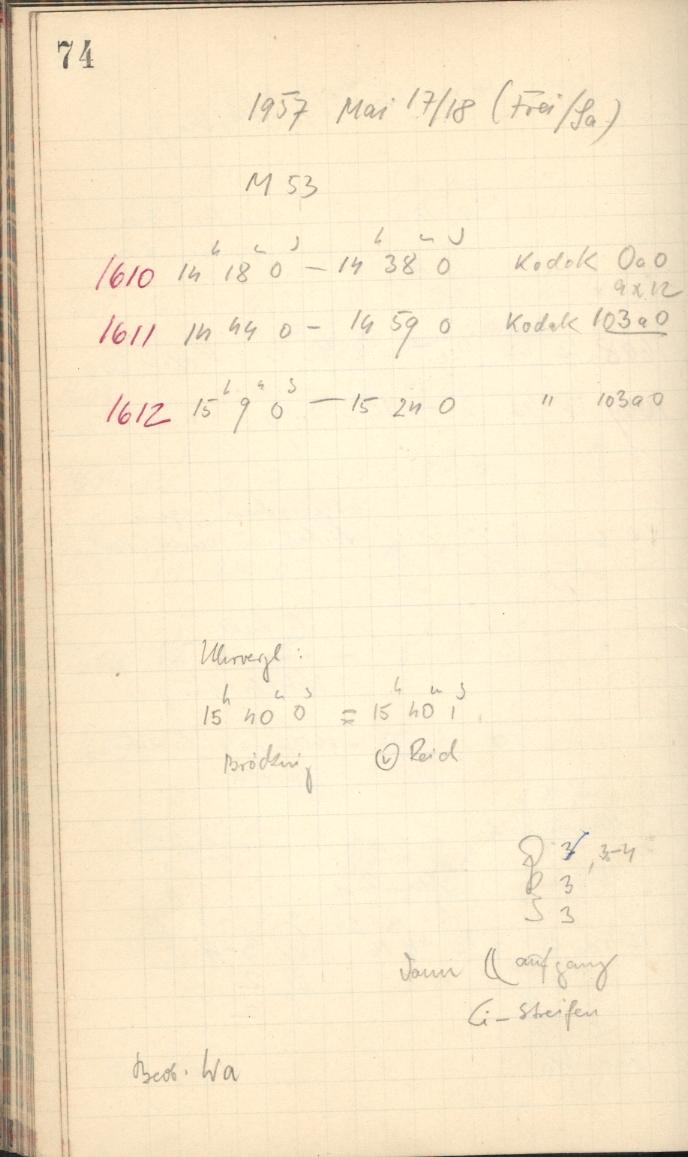 74
1957 Mai 17/18 (Frei/Sa.)
M 53
1610 14h 18m 0s – 14h 38m 0s Kodak OaO
9x12
1611 14 44 0 – 14 59 0 Kodak 103aO
1612 15h 9m 0s – 15 24 0 " 103aO
Uhrvergl:
15h 40m 0s = 15h 40m 1s
Bröcking Reid
3, 3-4
R 3
S 3
Dann ☾ aufgang
Ci-Streifen
Beob. Wa